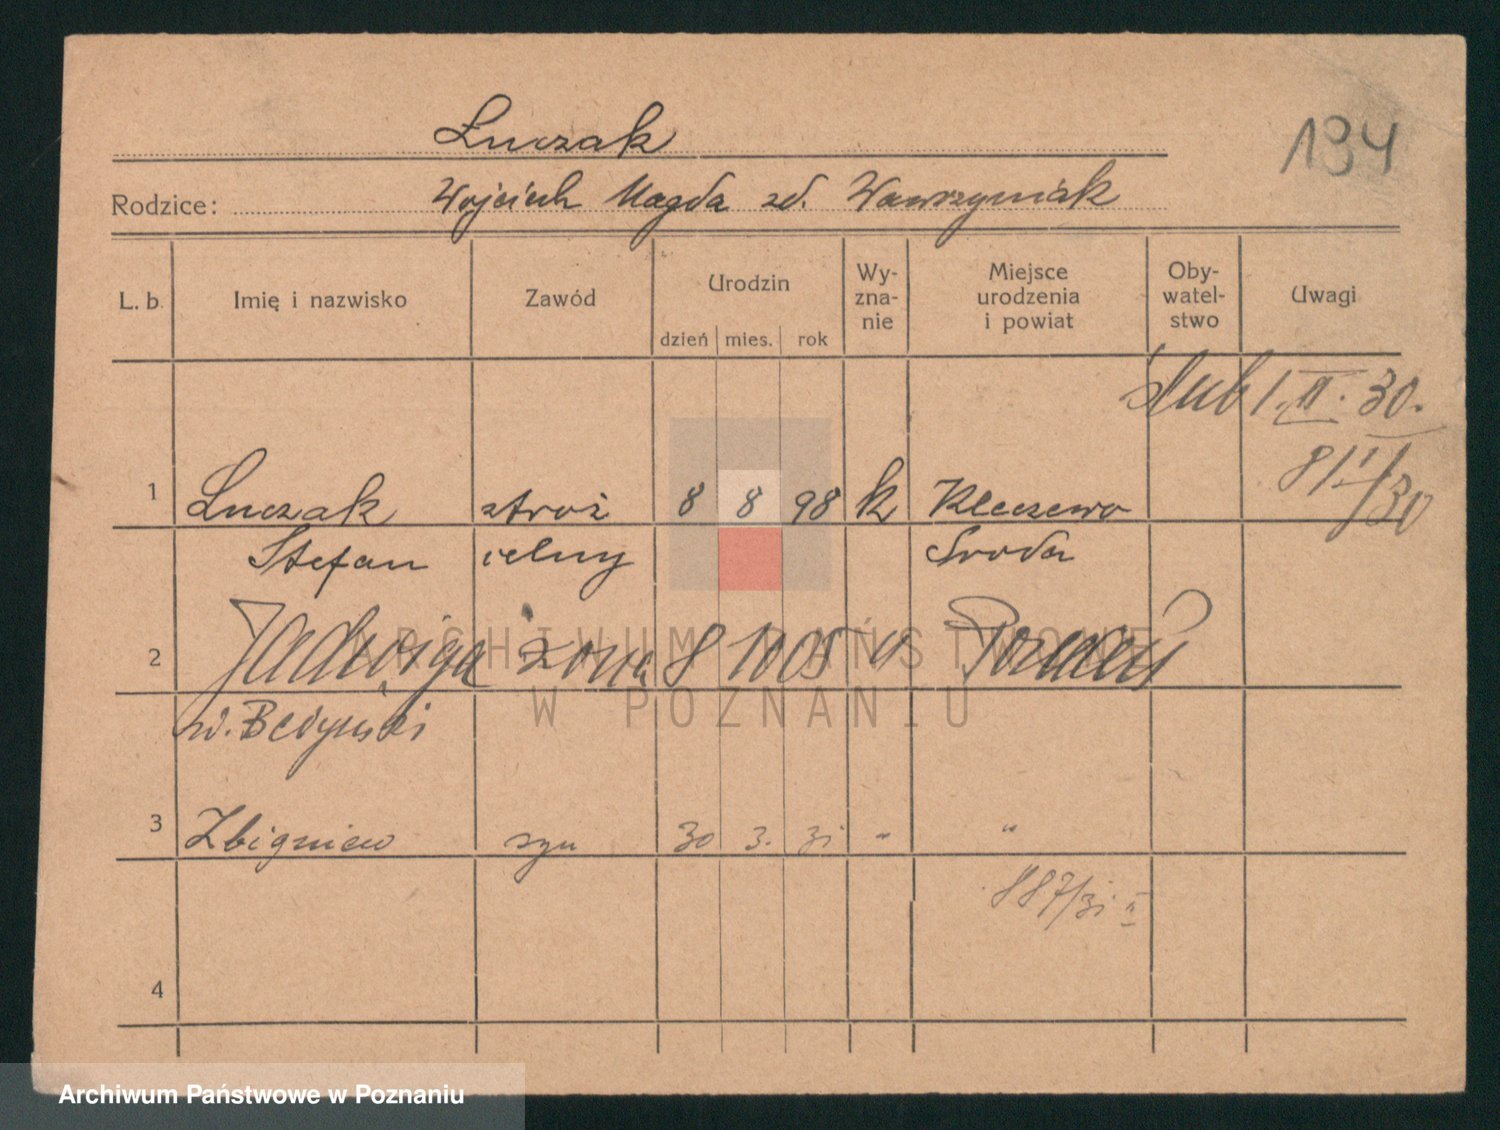 Łuczak
134
Rodzice: Wojciech Magda zd. Wawrzyniak
L. b. Imię i nazwisko Zawód Urodzin dzień mies. rok Wy-zna-nie Miejsce urodzenia i powiat Oby-watel-stwo Uwagi
ślub 1. II. 30.
1 Łuczak stróż 8 8 98 k Kleszewo
Stefan celny Środa
2 Jadwiga żona 8 10 05 " Poznań
zd.
3 Zbigniew syn 30 3. 31 " "
887/31 II
4
ARCHIWUM PAŃSTWOWE
W POZNANIU
Archiwum Państwowe w Poznaniu